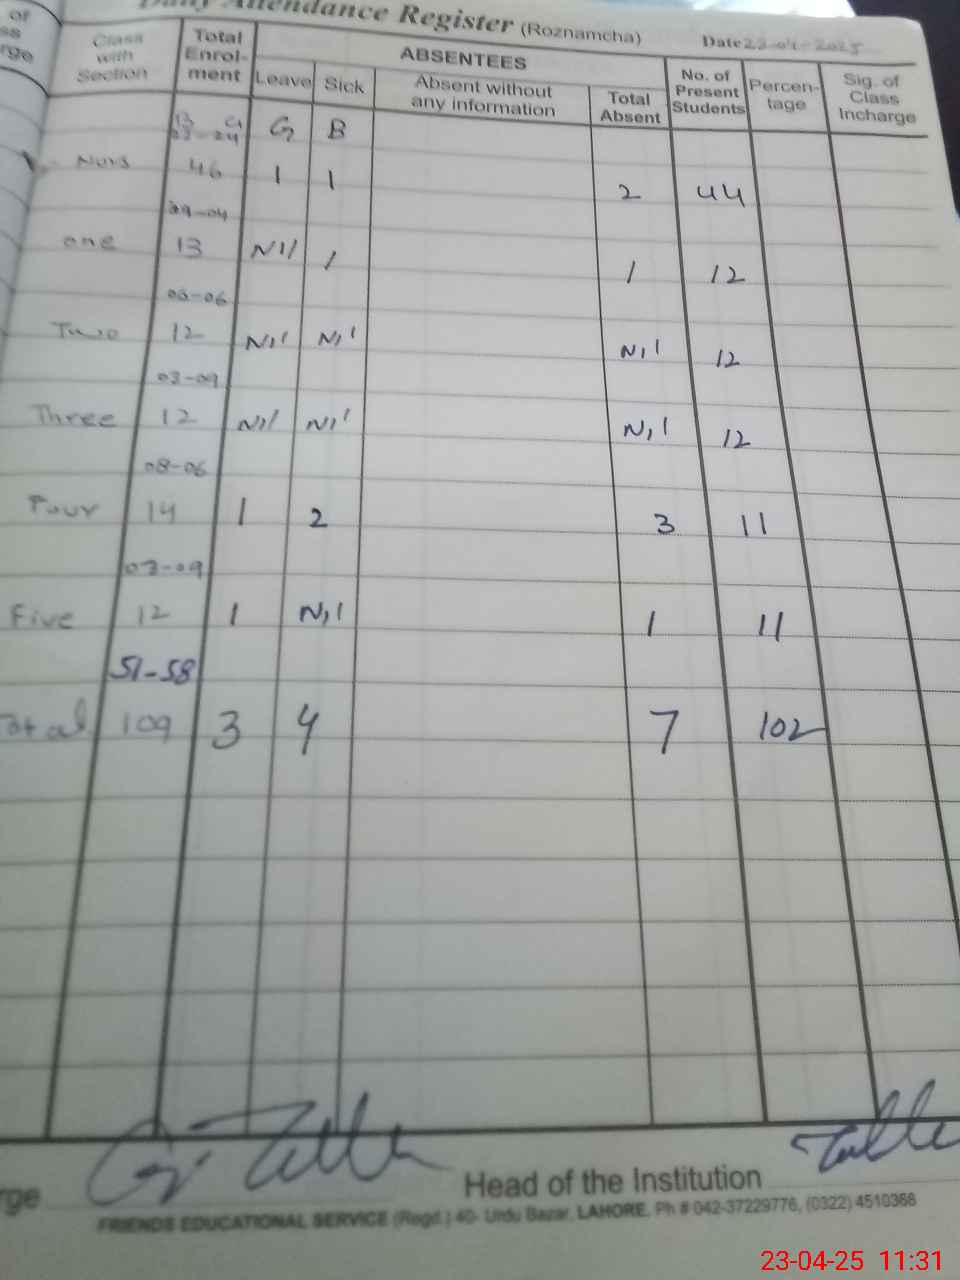 of
ss
rge
Daily Attendance Register (Roznamcha)
Date 23-04-2025
Class with Section
Total Enrolment
ABSENTEES
Leave
Sick
Absent without any information
Total Absent
No. of Present Students
Percentage
Sig. of Class Incharge
B G
G B
22-24
Nurs 46 1 1 2 44
09-04
one 13 Nil 1 1 12
06-06
Two 12 Nil Nil Nil 12
03-09
Three 12 Nil Nil Nil 12
08-06
Four 14 1 2 3 11
03-09
Five 12 1 Nil 1 11
51-58
Total 109 3 4 7 102
rge
Head of the Institution
FRIENDS EDUCATIONAL SERVICE (Regd.) 40- Urdu Bazar, LAHORE. Ph # 042-37229776, (0322) 4510368
23-04-25 11:31